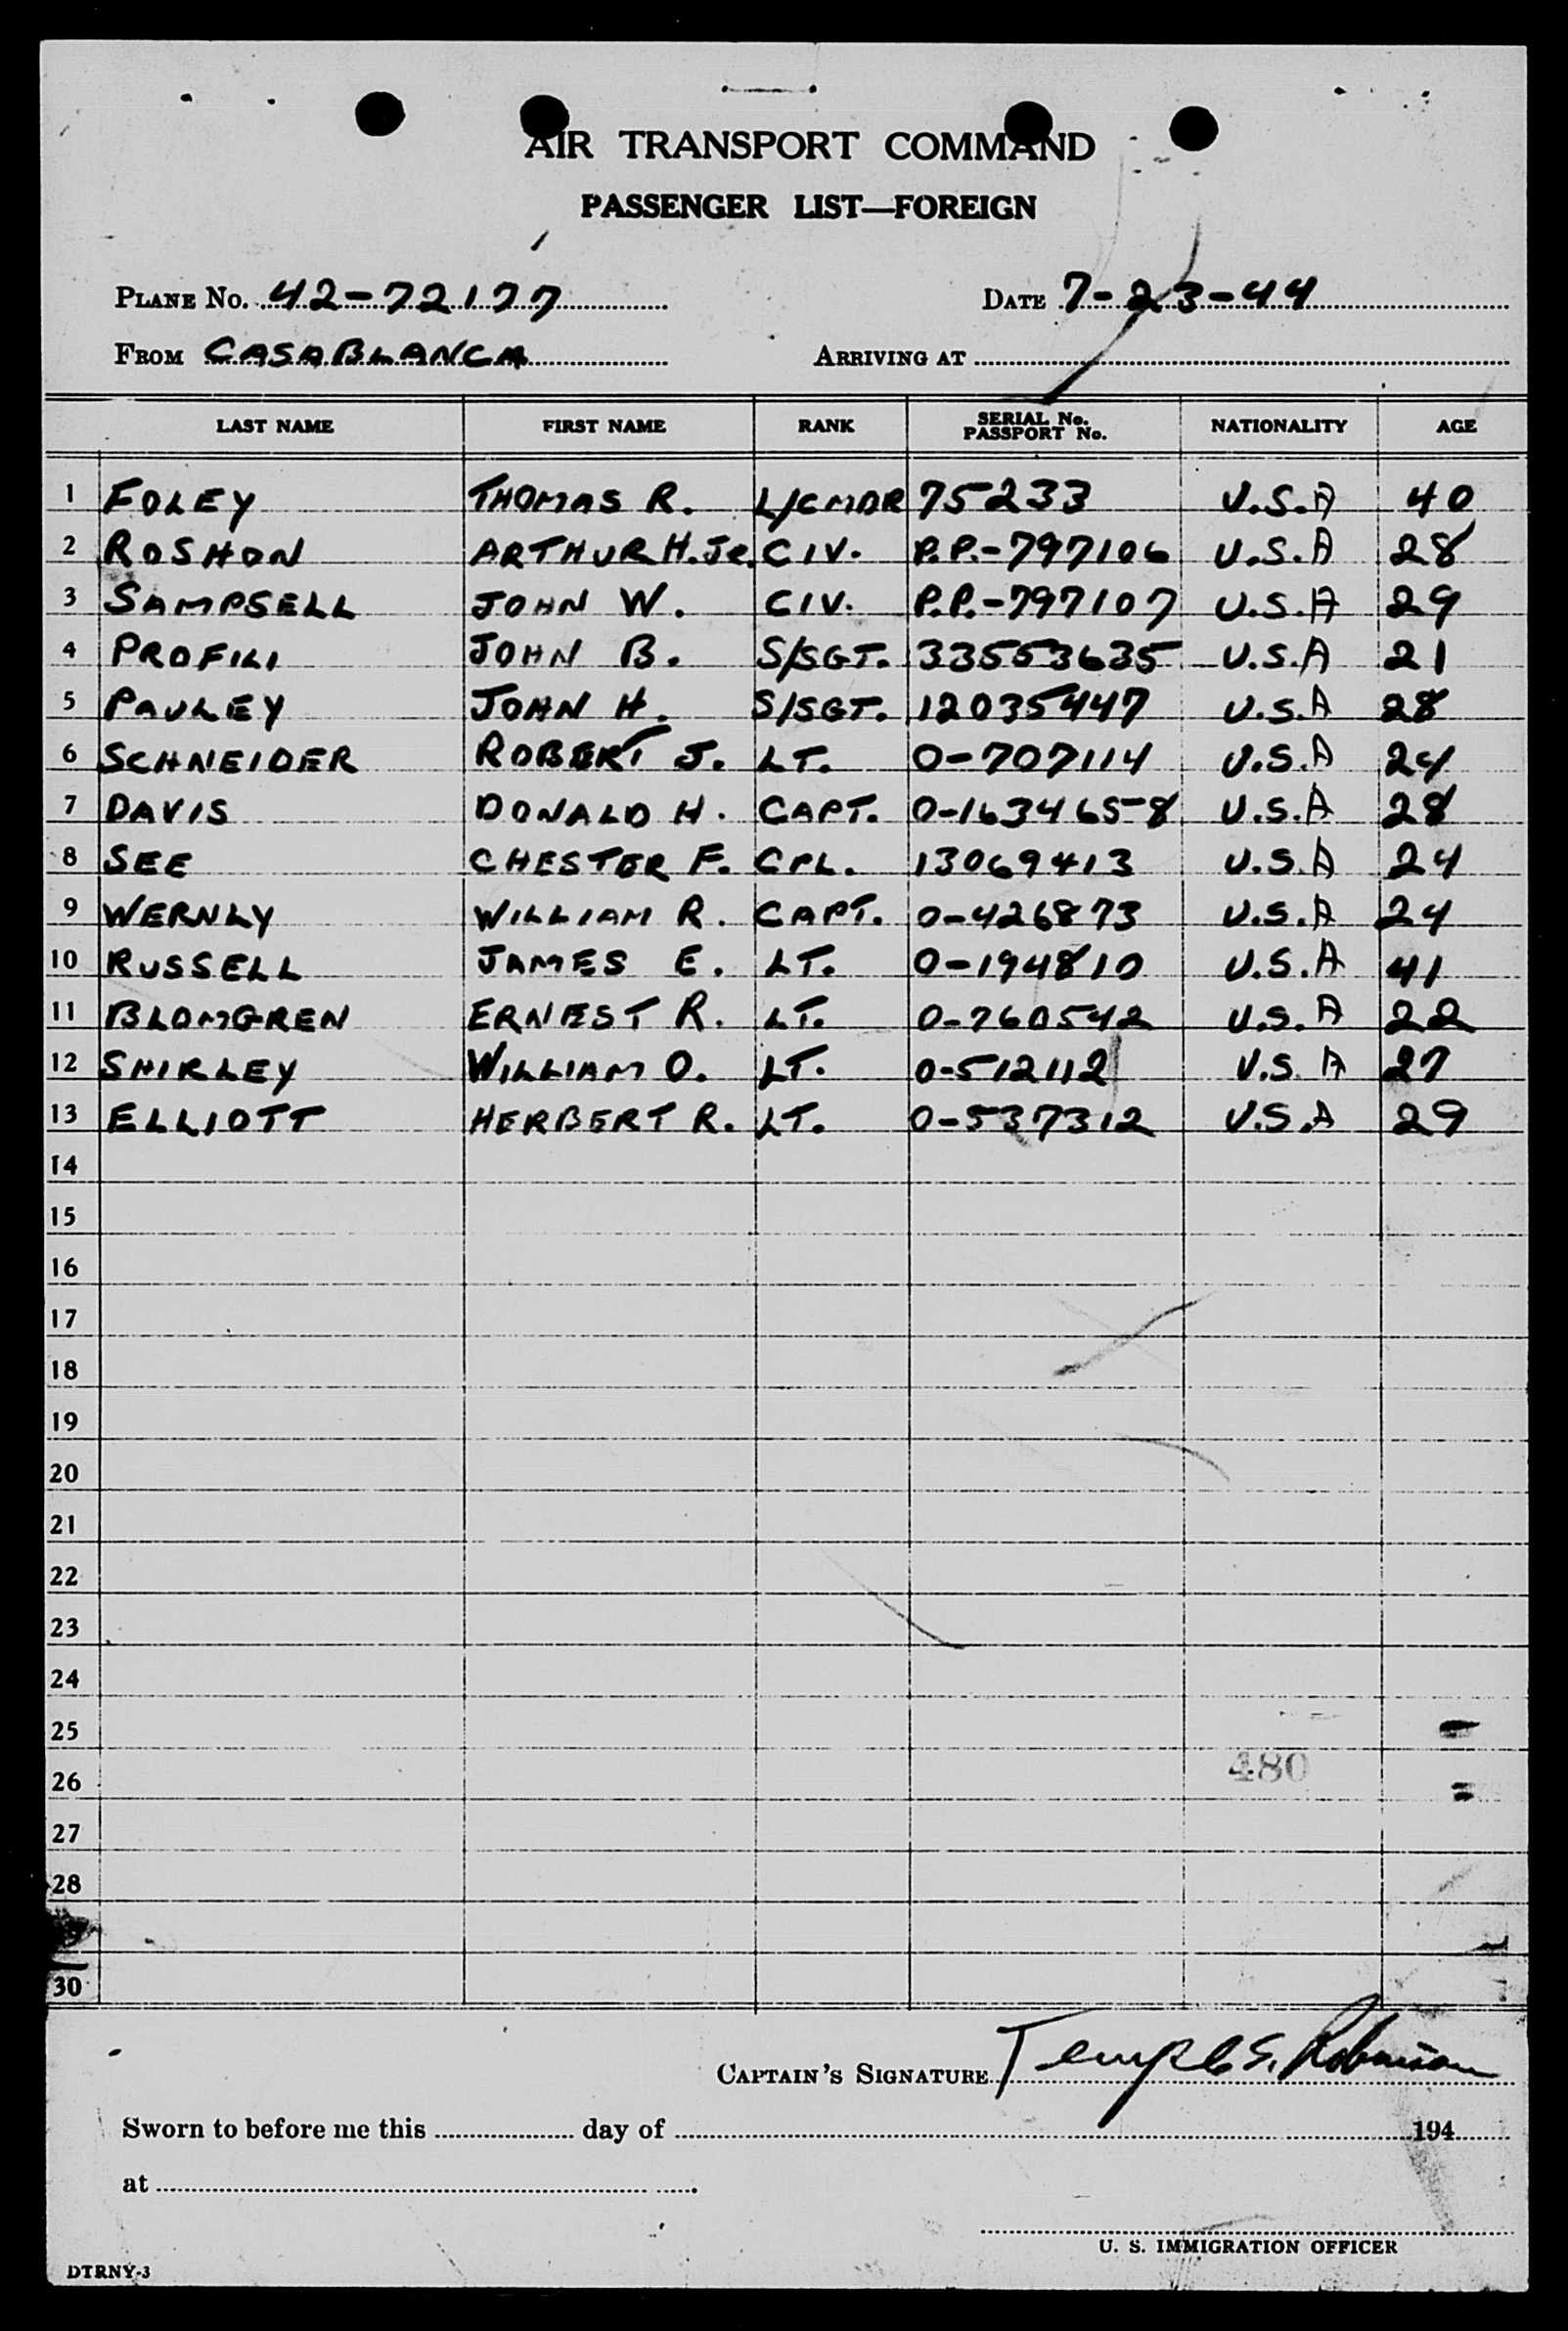 AIR TRANSPORT COMMAND
PASSENGER LIST—FOREIGN
PLANE No. 42-72177 DATE 7-23-44
FROM CASABLANCA ARRIVING AT
LAST NAME FIRST NAME RANK SERIAL No. PASSPORT No. NATIONALITY AGE
1 FOLEY THOMAS R. L/CMDR 75233 U.S.A 40
2 ROSHON ARTHUR H. JR. CIV. P.P.-797106 U.S.A 28
3 SAMPSELL JOHN W. CIV. P.P.-797107 U.S.A 29
4 PROFILI JOHN B. S/SGT. 33553635 U.S.A 21
5 PAULEY JOHN H. S/SGT. 12035447 U.S.A 28
6 SCHNEIDER ROBERT J. LT. O-707114 U.S.A 24
7 DAVIS DONALD H. CAPT. O-1634658 U.S.A 28
8 SEE CHESTER F. CPL. 13069413 U.S.A 24
9 WERNLY WILLIAM R. CAPT. O-426873 U.S.A 24
10 RUSSELL JAMES E. LT. O-194810 U.S.A 41
11 BLOMGREN ERNEST R. LT. O-760542 U.S.A 22
12 SHIRLEY WILLIAM O. LT. O-512112 U.S.A 27
13 ELLIOTT HERBERT R. LT. O-537312 U.S.A 29
14
15
16
17
18
19
20
21
22
23
24
25
26 480
27
28
30
CAPTAIN'S SIGNATURE Temple S. Robinson
Sworn to before me this day of 194
at
U. S. IMMIGRATION OFFICER
DTRNY-3